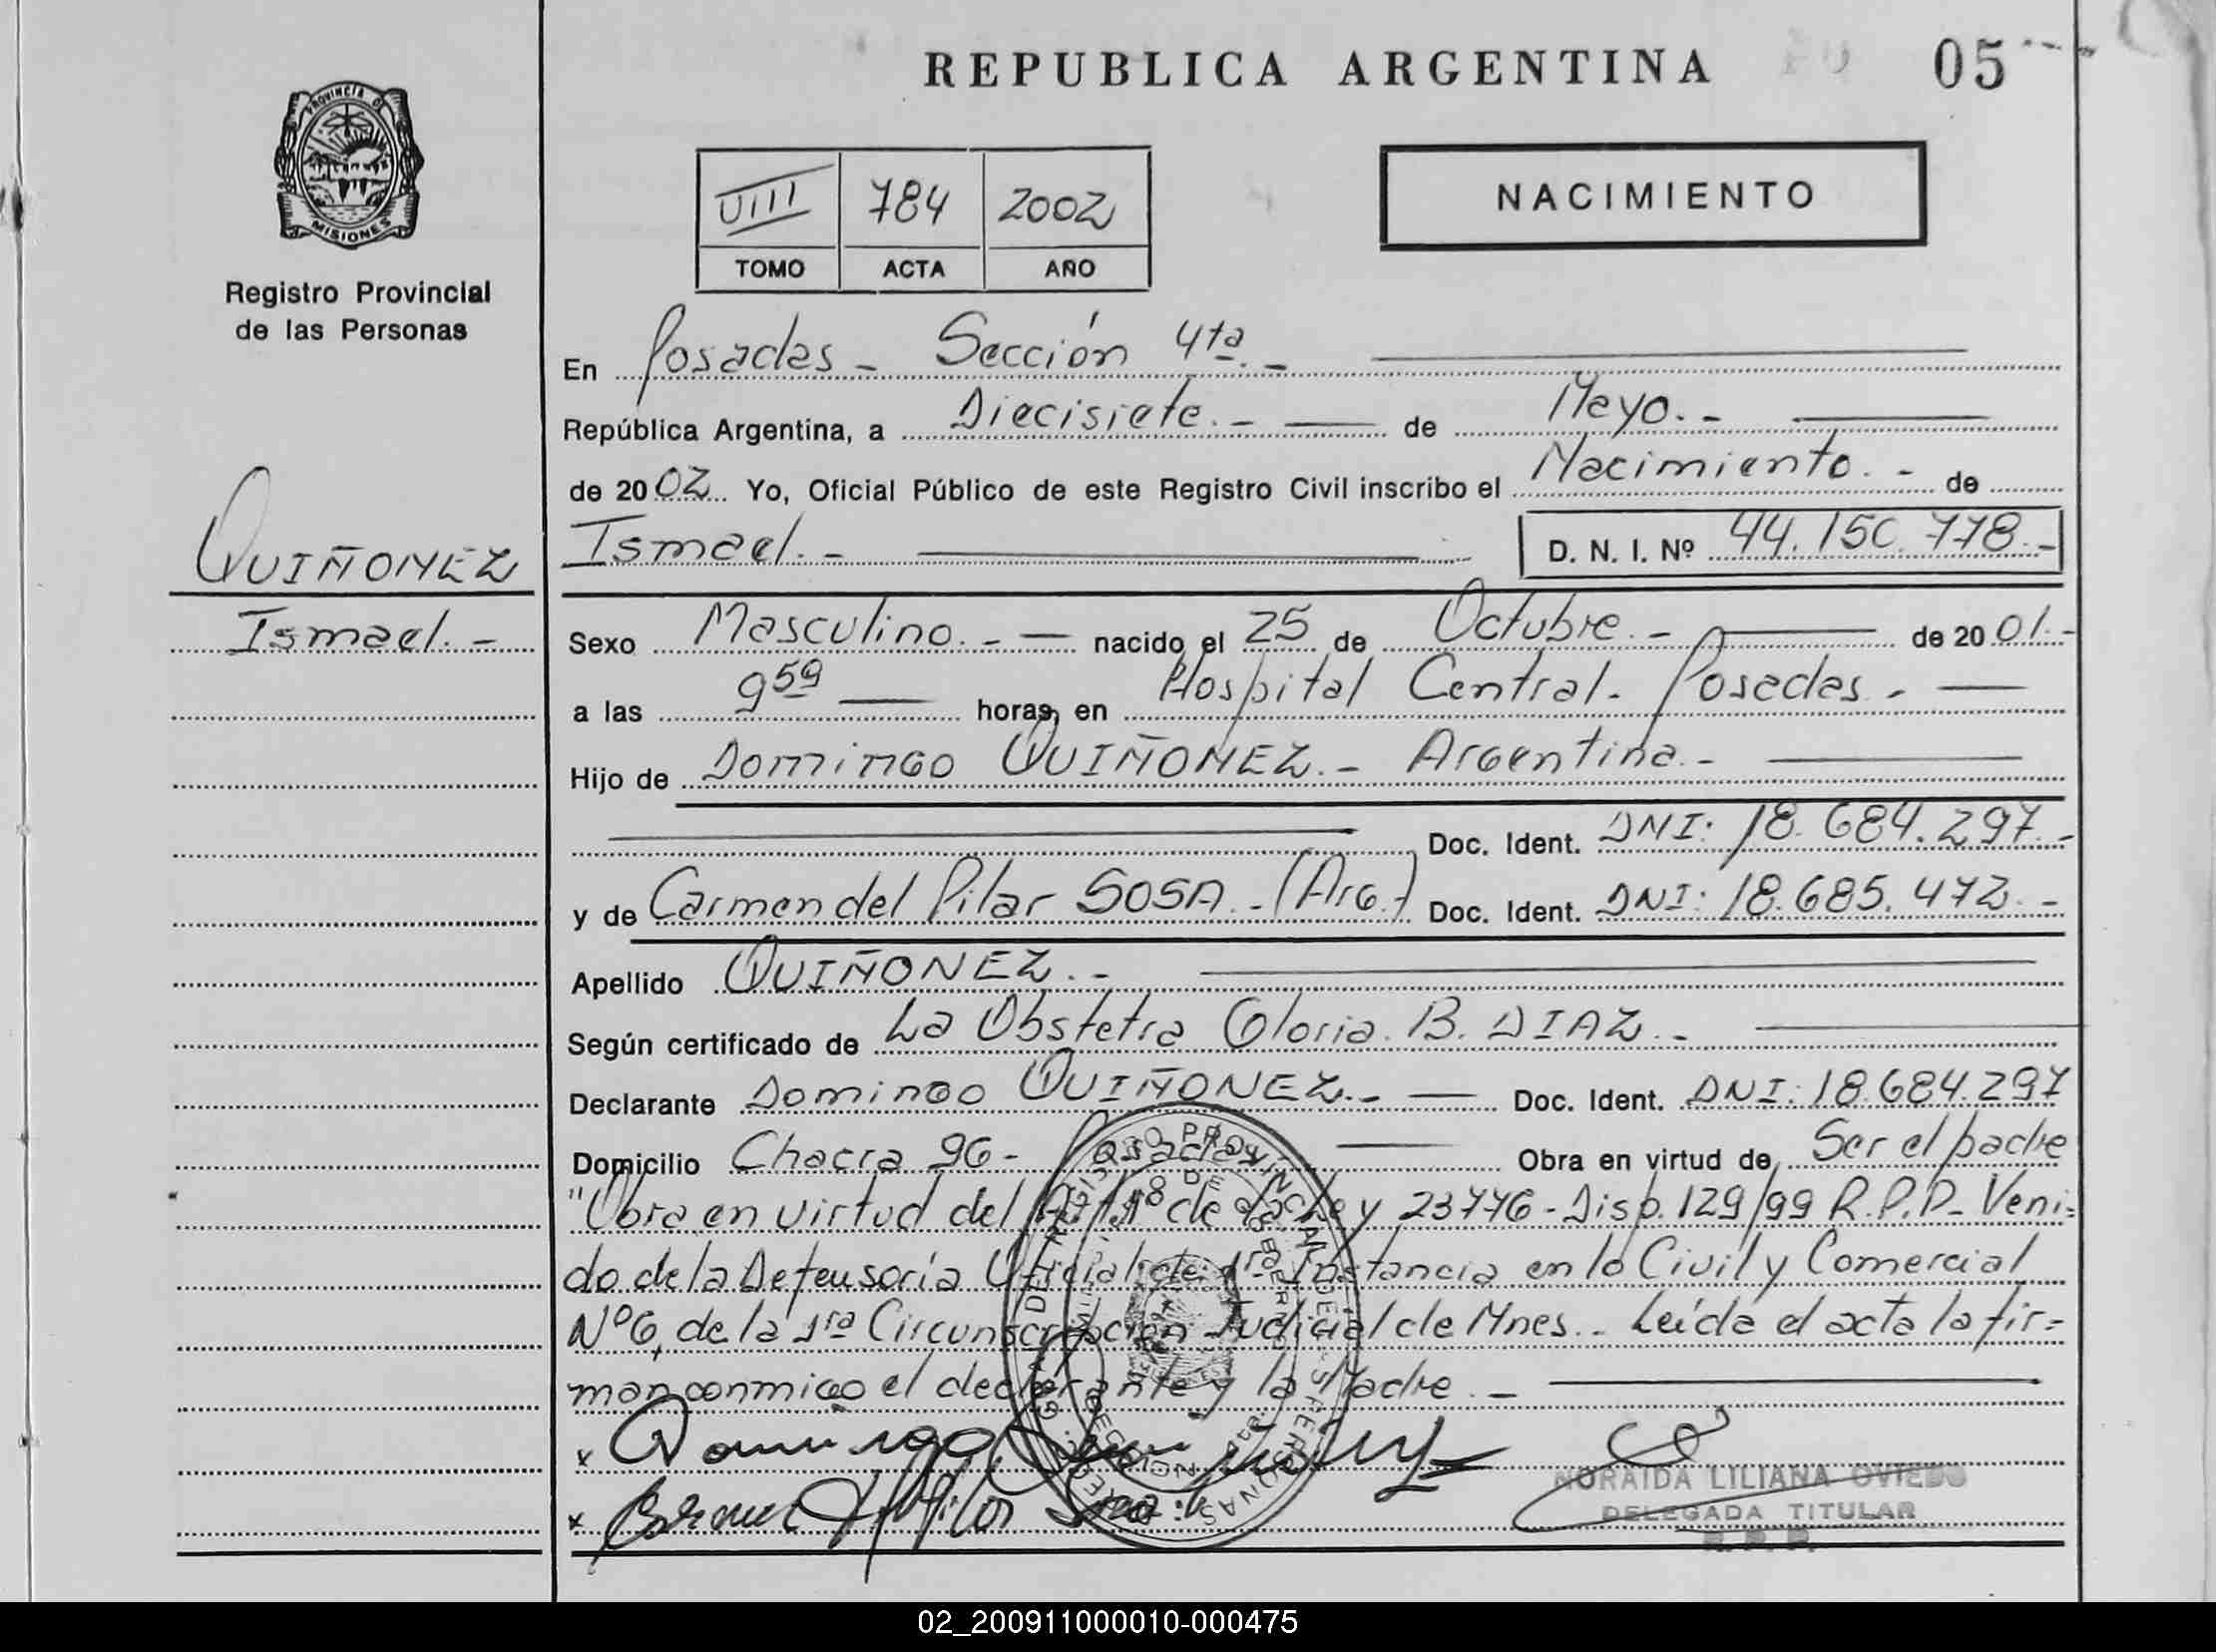 REPUBLICA ARGENTINA
05
PROVINCIA DE
MISIONES
Registro Provincial
de las Personas
VIII 784 2002
TOMO ACTA AÑO
NACIMIENTO
En Posadas - Sección 4ta. -
República Argentina, a Diecisiete. - de Mayo. -
de 2002 Yo, Oficial Público de este Registro Civil inscribo el Nacimiento. - de
QUIÑONEZ
Ismael. -
Ismael. - D. N. I. Nº 44.150.778. -
Sexo Masculino. - nacido el 25 de Octubre. - de 2001. -
a las 9 59 horas, en Hospital Central - Posadas. -
Hijo de Domingo QUIÑONEZ. - Argentina. -
Doc. Ident. DNI: 18.684.297. -
y de Carmen del Pilar SOSA. - (Arg.) Doc. Ident. DNI: 18.685.472. -
Apellido QUIÑONEZ. -
Según certificado de La Obstetra Gloria. B. DIAZ. -
Declarante Domingo QUIÑONEZ. - Doc. Ident. DNI: 18.684.297
Domicilio Chacra 96 - Posadas Obra en virtud de, Ser el padre
"Obra en virtud del de la Ley 23776 - Disp. 129/99 R.P.P. Veni=
do de la Defensoría Oficial de 1ra Instancia en lo Civil y Comercial
Nº6, de la 1ra Circunscripción Judicial de Mnes. - Leída el acta la fir=
man conmigo el declarante y la Madre. -
x Domingo
x
NORAIDA LILIANA OVIEDO
DELEGADA TITULAR
R. P. P.
02_200911000010-000475